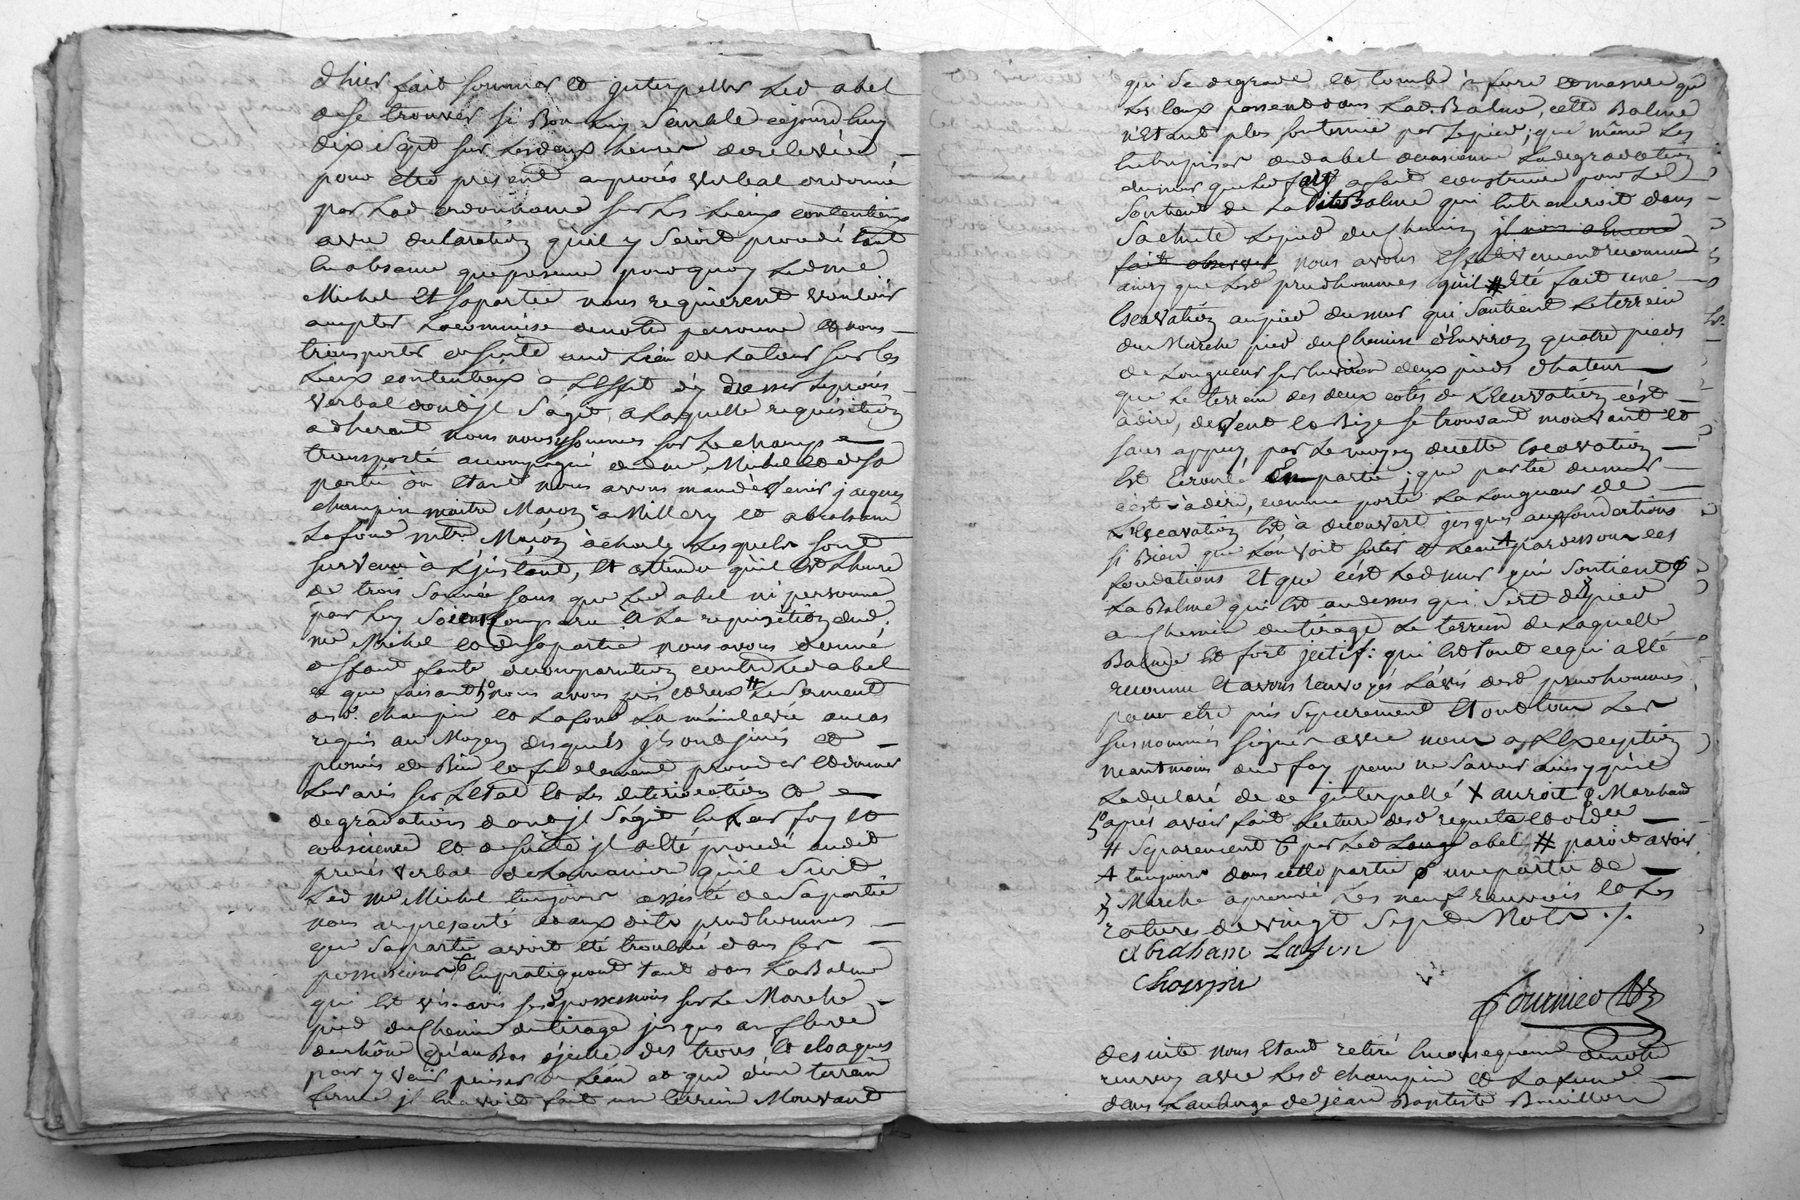 d'hier fait sommer et interpeller led abel
de se trouver si Bon luy semble cejourdhuy
dix sept sur les deux heures de relevée
pour etre présent au procés verbal ordonné
par lad ordonnance sur les lieux contentieux
avec declaration qu'il y seroit procédé tant
en absence que presence pourquoy led me
Michel et sa partie nous requierent vouloir
accepter la commise de notre personne et nous
transporter ensuite aud lieu sur les
lieux contentieux à l'effet d'y dresser le procés
verbal dont jl s'agit, a laquelle requisition
adherant nous nous sommes sur le champ
transporté accompagné dud me Michel et de sa
partie où etant nous avons mandé venir jacques
champin maitre Maçon à Millery et abraham
Lafond mtre Maçon à lesquels sont
survenu à l'jnstant, et attendu qu'il est l'heure
de trois sonnée sans que led abel ni personne
par luy soient comparu à la requisition dud
me Michel et de sa partie nous avons donné
deffaut faute de comparution contre led abel
et que faisant nous avons pris et reçu # le serment
desd. champin et Lafond la main levée au cas
requis au Moyen desquels jls ont jurés et
promis de Bien et fidelement proceder et donner
leur avis sur l'état et les deterioration et
degradations dont jl s'agit en leur foy et
conscience et de suite jl a été procédé audit
procés verbal de la manière qu'il suit
Led me Michel toujours assisté de sa partie
nous a representé et aux dits prudhommes
que sa partie avoit été troublé dans ses
possessions en pratiquant tant dans la Balme
qui est vis-avis ses possessions sur le Marche
pied du chemin du tirage jusques au fleuve
du rhône qu'au Bas d'jcelle des trous et cloaques
pour y venir puiser de l'eau et que d'un terrein
ferme jl en avoit fait un terrein Mouvant
qui se degrade et tombe à fure et mesure que
les eaux passent dans lad. Balme, cette Balme
n'etant plus soutenue par le pied; que même les
entreprises dud abel occasionne la degradation
du mur que led fay a fait construire pour le
soutient de la dite Balme qui entreneroit dans
sa chute le pied du chemin jl nous a encore
fait observer nous avons effectivement reconnu
ainsy que lesd prudhommes qu'il # été fait une
Excavation au pied du mur qui soutient le terrein
du Marche pied du chemin d'environ quatre pieds
de longueur sur environ deux pieds d'hateur
que le terrein des deux cotés de l'Excavation c'est
à dire, de vent et Bize se trouvant mouvant et
sans appuy, par le moyen de cette excavation
est Ecroulé en partie; que partie du mur
c'est-à-dire, comme porte la longueur de
l'Excavation est à decouvert jusques aux fondations
si Bien que l'on voit sortir l'eau par dessous les
fondations et que c'est led mur qui soutient
la Balme qui est au dessus qui sert de pied
au chemin du tirage le terrein de laquelle
Balme est fort jectif: qui est tout ce qui a été
reconnu et avons renvoyés l'avis desd prudhommes
pour etre pris séparement et ont tous les
susnommés signés avec nous à l'Exception
néantmoins dud fay pour ne savoir ainsy qu'il
l'a declaré de ce jnterpellé X auroit Marchand
après avoir fait lecture desd requete et ordce
# séparement par led abel # paroit avoir
toujours dans cette partie une partie de
Marche approuvé les neuf renvois et les
ratures de vingt sept Mots ./.
Abraham Lafon
Champin
Fournier
de suite nous etant retiré en consequence de notre
renvoy avec lesd champin et Lafond
dans l'auberge de jean Baptiste Brillon